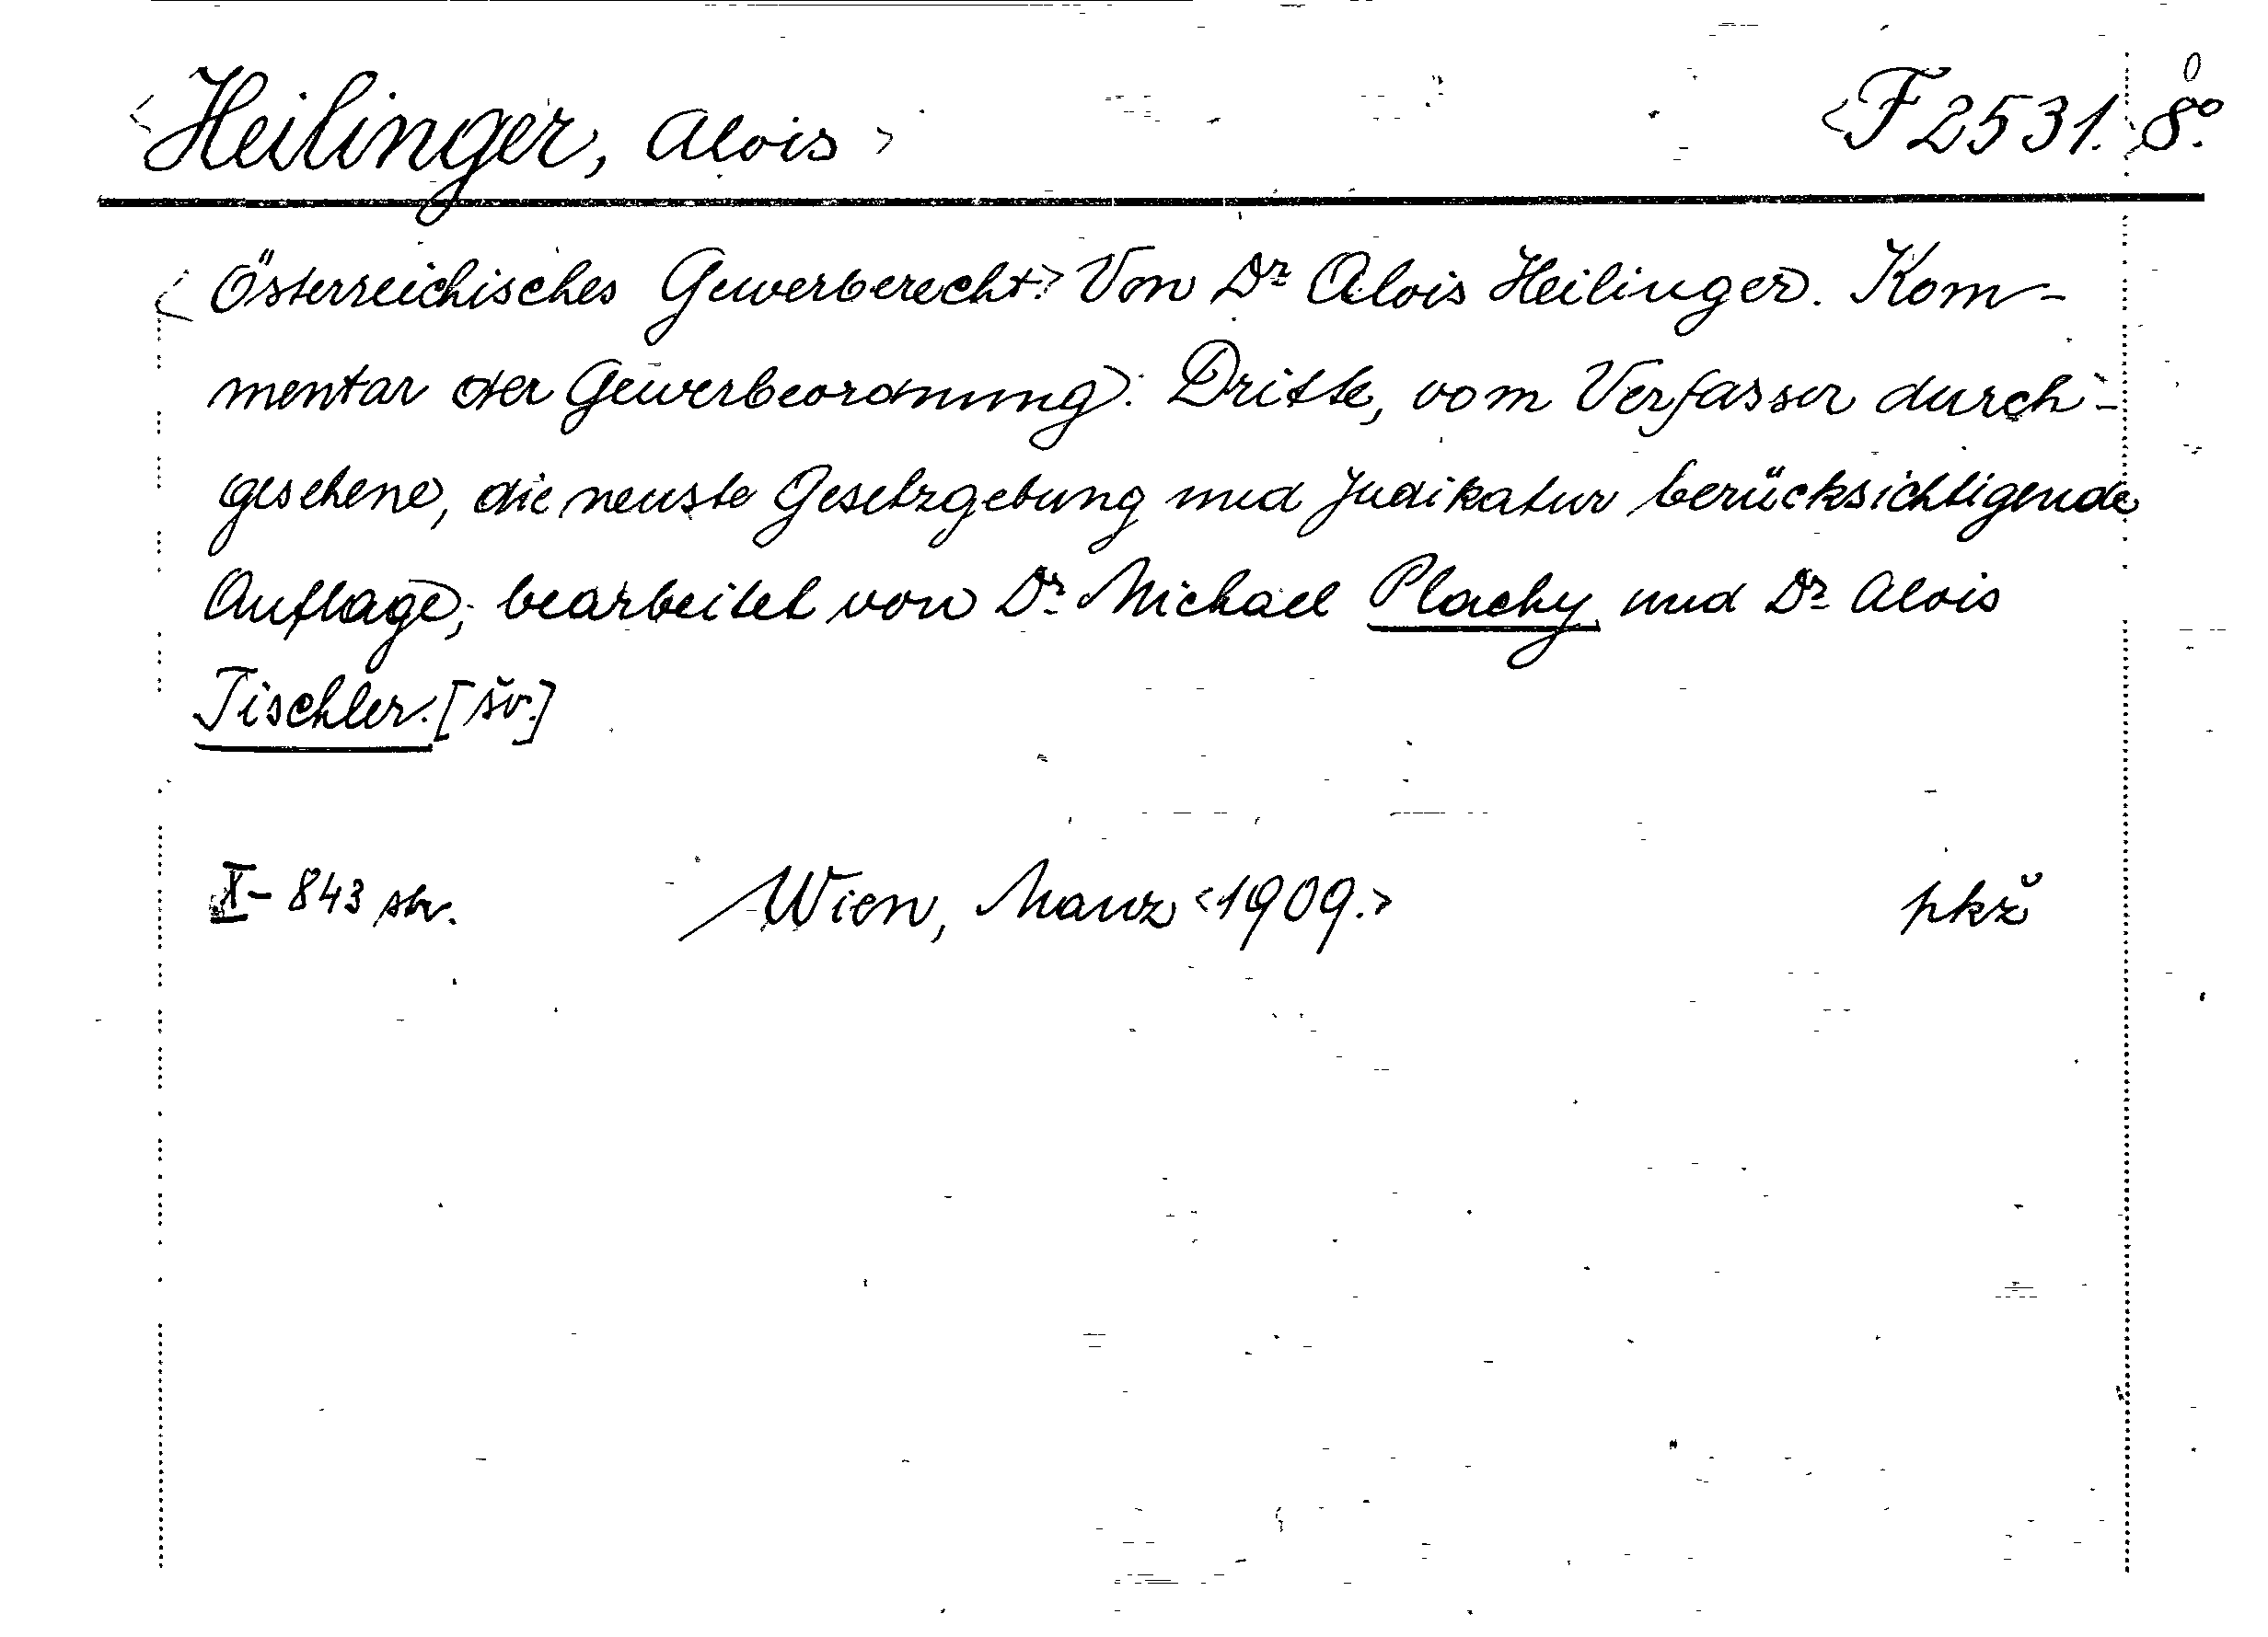 <Heilinger, Alois> <F 2531. 8°.
<Österreichisches Gewerberecht.> Von Dr Alois Heilinger. Kom-
mentar der Gewerbeordnung. Dritte, vom Verfasser durch-
gesehene, die neuste Gesetzgebung und Judikatur berücksichtigende
Auflage, bearbeitet von Dr. Michael Plachy und Dr Alois
Tischler. [šv.]
X - 843 str. Wien, Manz <1909.> pkž